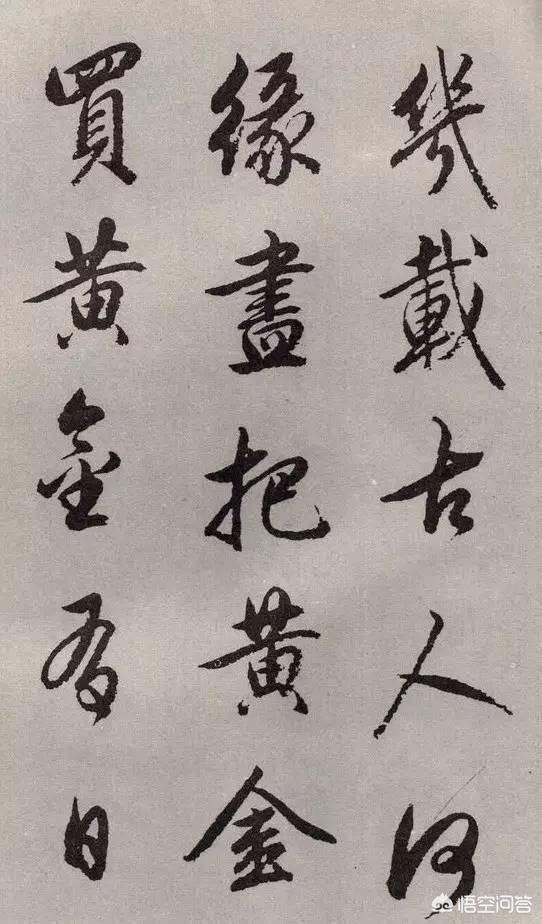 幾載古人何
緣盡把黃金
買黃金有日
悟空问答